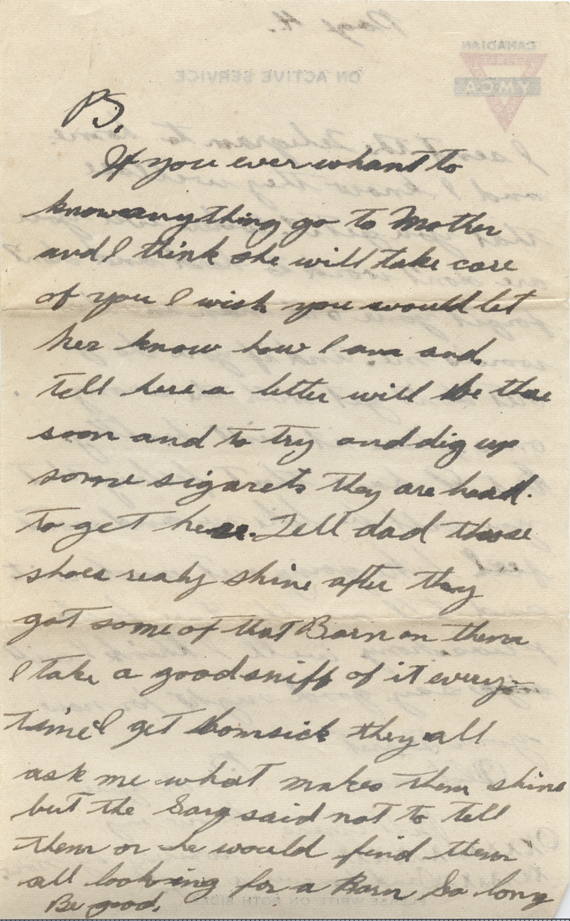 PS.
If you ever whant to
know anything go to Mother
and I think she will take care
of you I wish you would let
her know how I am and
tell here a letter will be thee
soon and to try and dig up
some sigarets they are head.
to get here. Tell dad those
shoes realy shine after they
got some of that Barn on them
I take a good sniff of it every
time I get homsick they all
ask me what makes them shine
but the Sarg said not to tell
them or he would find them
all looking for a Barn So long
Be good.